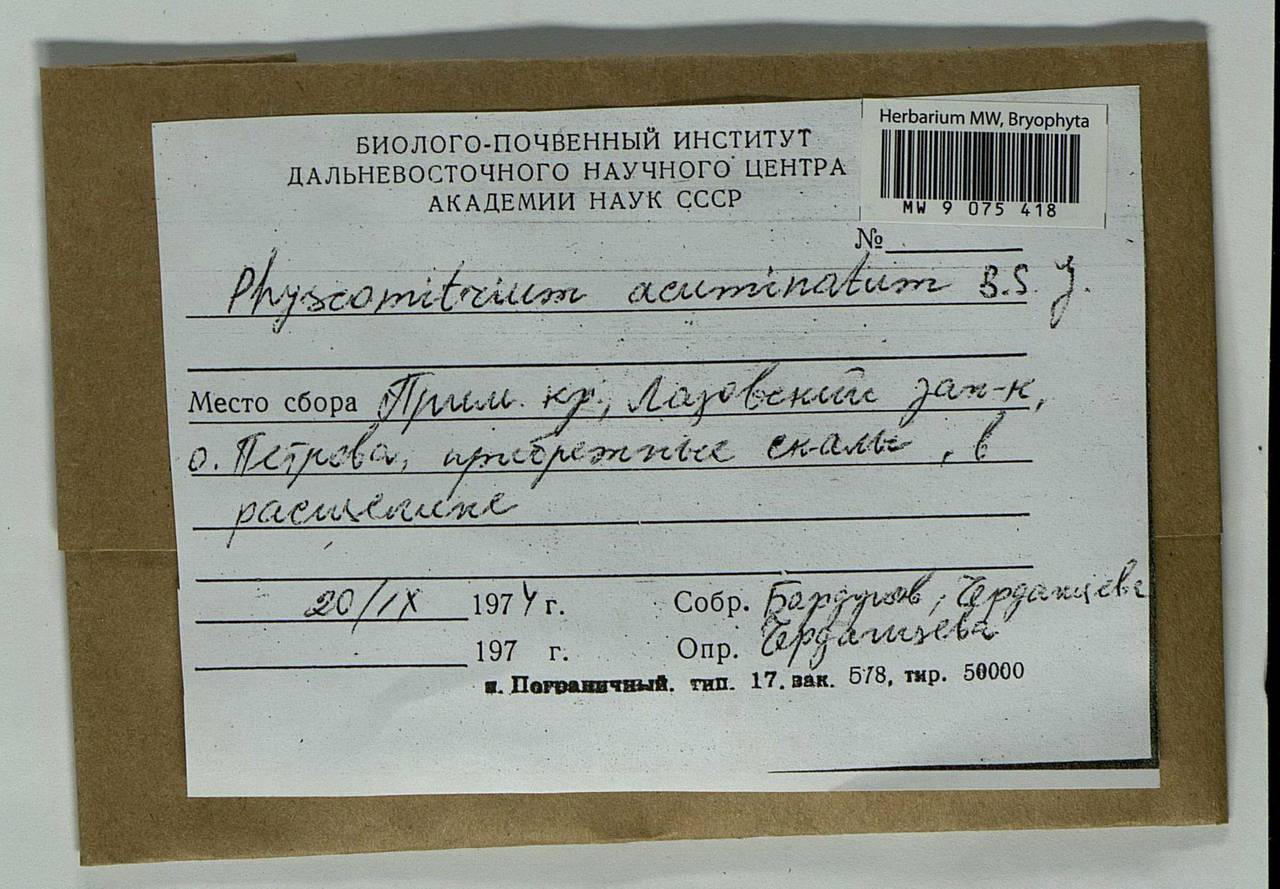 Herbarium MW, Bryophyta
MW 9 075 418
БИОЛОГО-ПОЧВЕННЫЙ ИНСТИТУТ
ДАЛЬНЕВОСТОЧНОГО НАУЧНОГО ЦЕНТРА
АКАДЕМИИ НАУК СССР
№
Physcomitrium acuminatum B.S.
Место сбора Прим. кр., Лазовский зап-к,
о. Петрова, прибрежные скалы, в
расщелине
20/IX 1974 г. Собр. Бардунов, Черданцева
197 г. Опр. Черданцева
п. Пограничный. тип. 17. зак. 578, тир. 50000